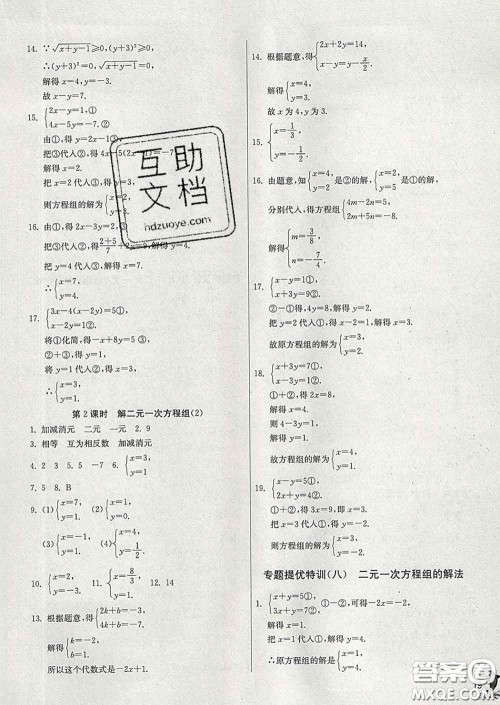 14. ∵√(x+y-1)≥0, (y+3)²≥0,
∴(y+3)²=0, √(x+y-1)=0,
解得 x=4, y=-3.
故 x-y=7.
15. {2x-y=1,①
4x-5y=-7.②
由①,得 y=2x-1③.
把③代入②,得 4x-5(2x-
解得 x=2.
把 x=2 代入③,得 y=3.
则方程组的解为{x=2,
y=3.
16. 由①,得 2x-3y=2③,
把③代入②,得 (2+5)/7
把 y=4 代入③,解得 x=7,
∴{x=7,
y=4.
17. {3x-4(x-2y)=5①,
x-2y=1②.
将①化简,得 -x+8y=5 ③,
②+③,得 6y=6,即 y=1.
将 y=1 代入②,得 x=3.
∴{x=3,
y=1.
第 2 课时 解二元一次方程组(2)
1. 加减消元 二元 一元 2. 9
3. 相等 互为相反数 加减消元
4. 2 3 5. -3 6. {x=3,
y=1.
7. 5 8. B
9. (1){x=7,
y=1. (2){x=1,
y=0.
10. {x=4,
y=-1 11. {x=8/3,
y=1. 12. 14
13. 根据题意,得{2k+b=-3,
-k+b=3,
解得{k=-2,
b=-1.
所以这个代数式是 -2x+1.
14. 根据题意,得{2x+2y=14,
x-y=-x/2.
解得{x=4,
y=3.
故 x 为 4, y 为 3.
15. {x=1/3,
16. 由题意,知{x=
是②的解,{x=
是①的解,
分别代入,得方程组{4m-2n=5,
2m+5n=-8.
解得{m=3/8,
n=-7/4
17. {x-y=1①,
x+3y=9②.
②-①得,4y=8,解得 y=2.
把 y=2 代入①得,x=3.
故原方程组的解为{x=3,
y=2.
18. {x+3y=7①,
x=1②.
把 x=4,
则 4-3y=1.
解得 y=1.
故方程组的解为{x=4,
y=1.
19. {x-y=5①,
2x+y=4②.
①+②,得 3x=9,即 x=3.
把 x=3 代入①,得 y=-2.
则原方程组的解为{x=3,
y=-2.
专题提优特训(八) 二元一次方程组的解法
1. {x+y=1①,
②-①,可得 -2x=-2,
解得 x=1.
把 x=1 代入①,解得 y=
∴原方程组的解是{x=1,
互助
文档
hdzuoye.com
答案圈
MXQE.COM